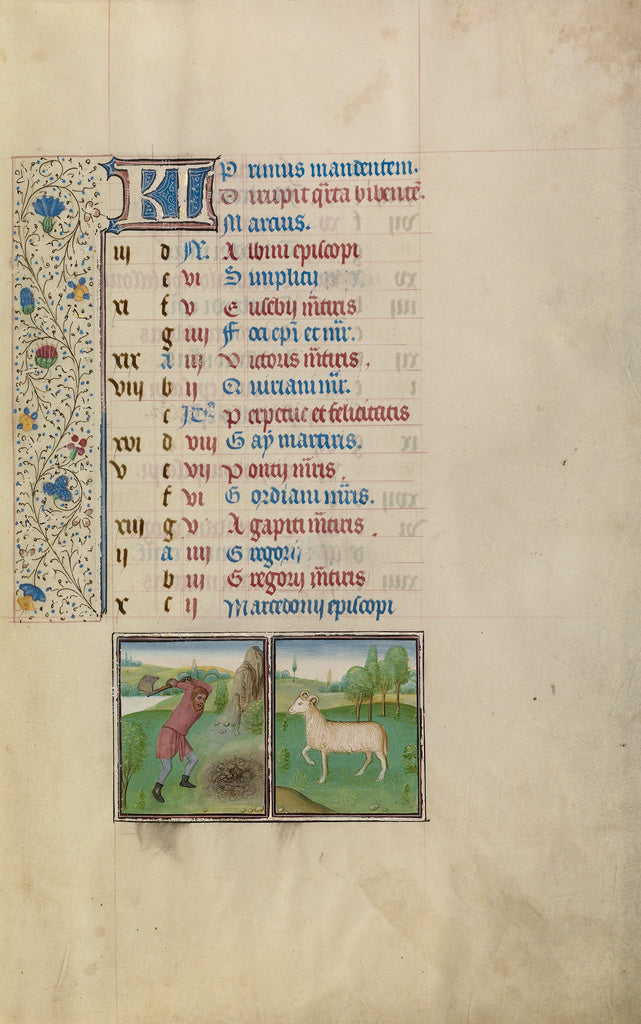 KL Primus mandentem.
Dirupit q̄rta bibentē.
Marcius.
iij d N. Albini episcopi
e vi Simplicij
xi f v Eusebij m̄tiris
g iiij Foci ep̄i et mr̄.
xix a iij Victoris m̄tiris,
viij b ij Quiriani mr̄.
c Perpetue et felicitatis
xvi d viij Gaÿ martiris.
v e vij Pontij mr̄is,
f vi Gordiani mr̄is.
xiij g v Agapiti m̄tiris.
ij a iiij Gregorij
b iij Gregorij m̄tiris
x c ij Macedonij episcopi